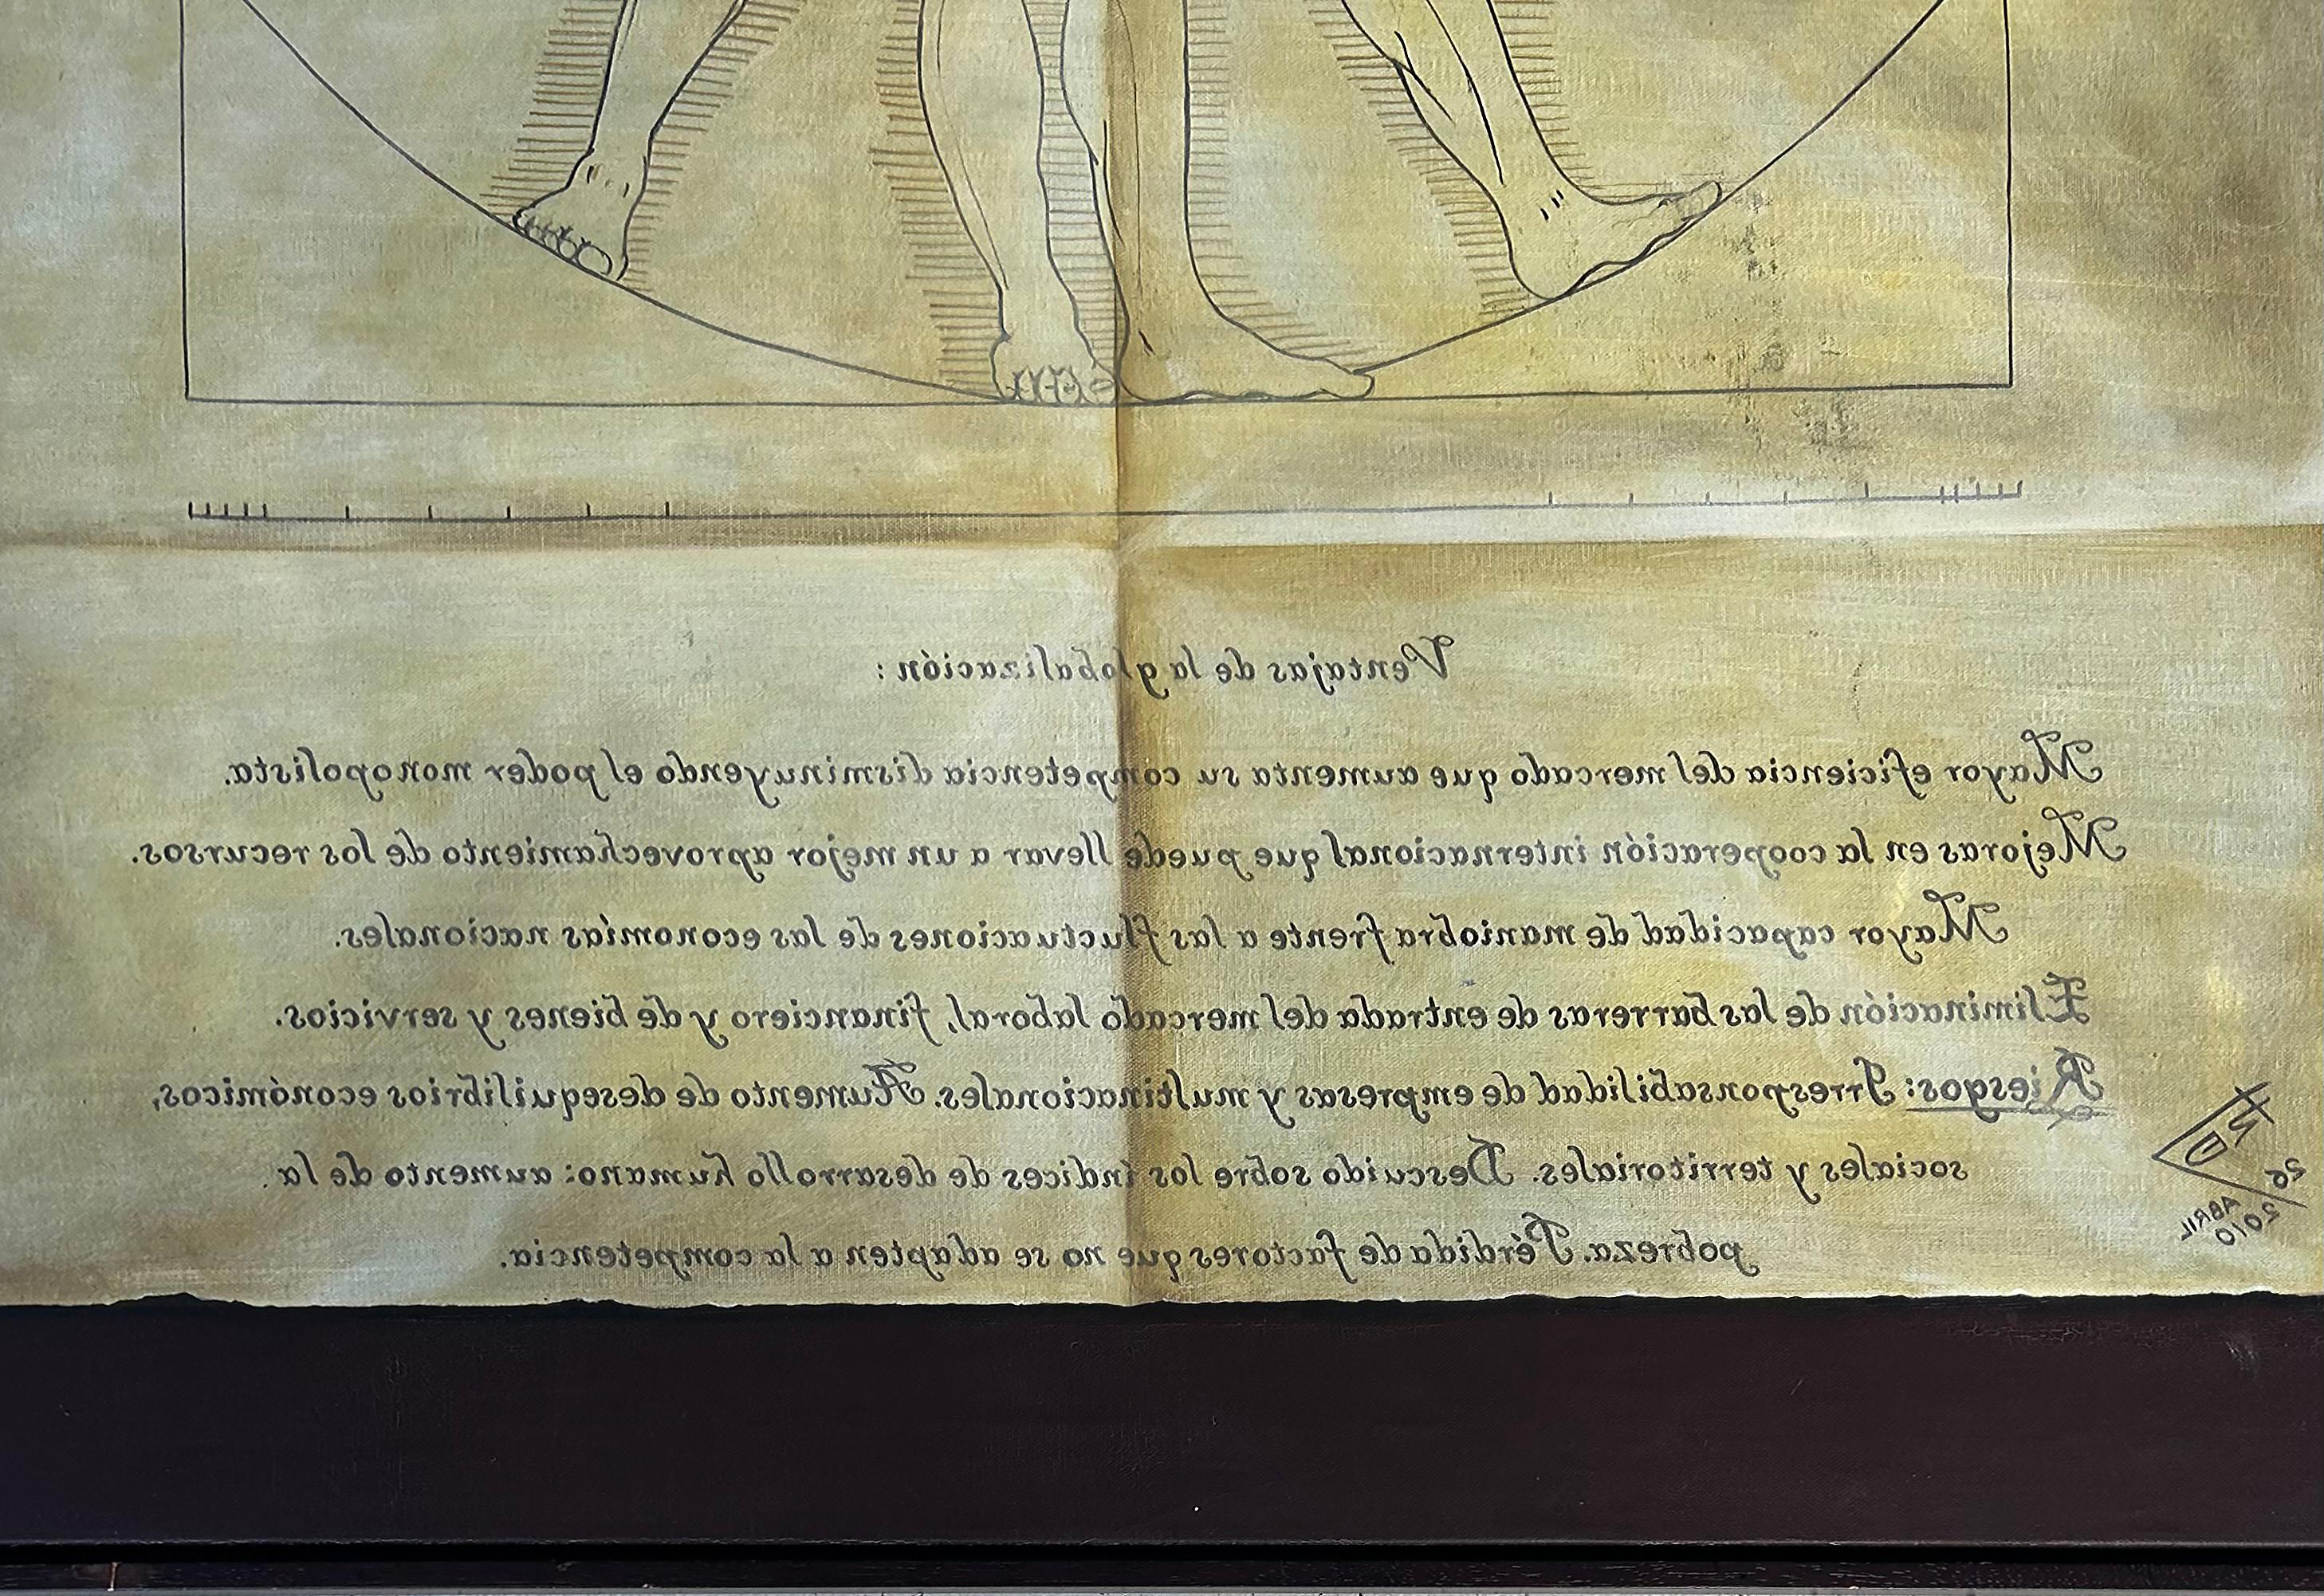 Ventajas de la globalización:
Mayor eficiencia del mercado que aumenta su competencia disminuyendo el poder monopolista.
Mejoras en la cooperación internacional que puede llevar a un mejor aprovechamiento de los recursos.
Mayor capacidad de maniobra frente a las fluctuaciones de las economías nacionales.
Eliminación de las barreras de entrada del mercado laboral, financiero y de bienes y servicios.
Riesgos: Irresponsabilidad de empresas y multinacionales. Aumento de desequilibrios económicos,
sociales y territoriales. Descuido sobre los índices de desarrollo humano: aumento de la
pobreza. Pérdida de factores que no se adapten a la competencia.
26
ABRIL
2010